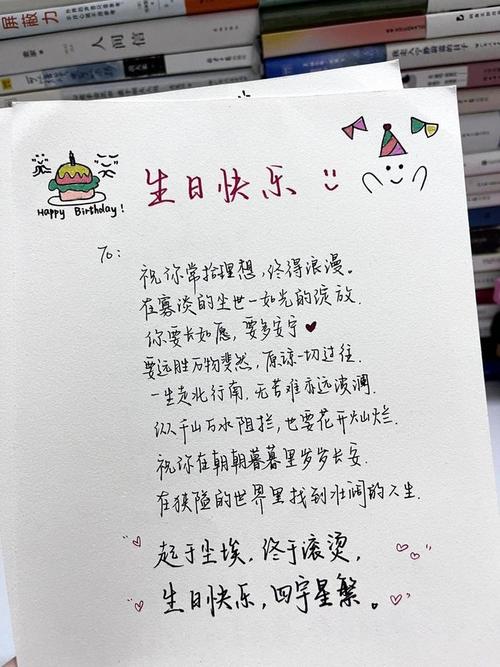 屏蔽力
人间信
生日快乐
Happy Birthday!
To:
祝你常拾理想,终得浪漫。
在寡淡的尘世一如光的绽放.
你要长如愿,要多安宁
要远胜万物斐然,原谅一切过往.
一生走北行南,无苦难亦远波澜.
纵千山万水阻拦,也要花开灿烂.
祝你在朝朝暮暮里岁岁长安.
在狭隘的世界里找到壮阔的人生.
起于尘埃,终于滚烫,
生日快乐,四宇星繁。